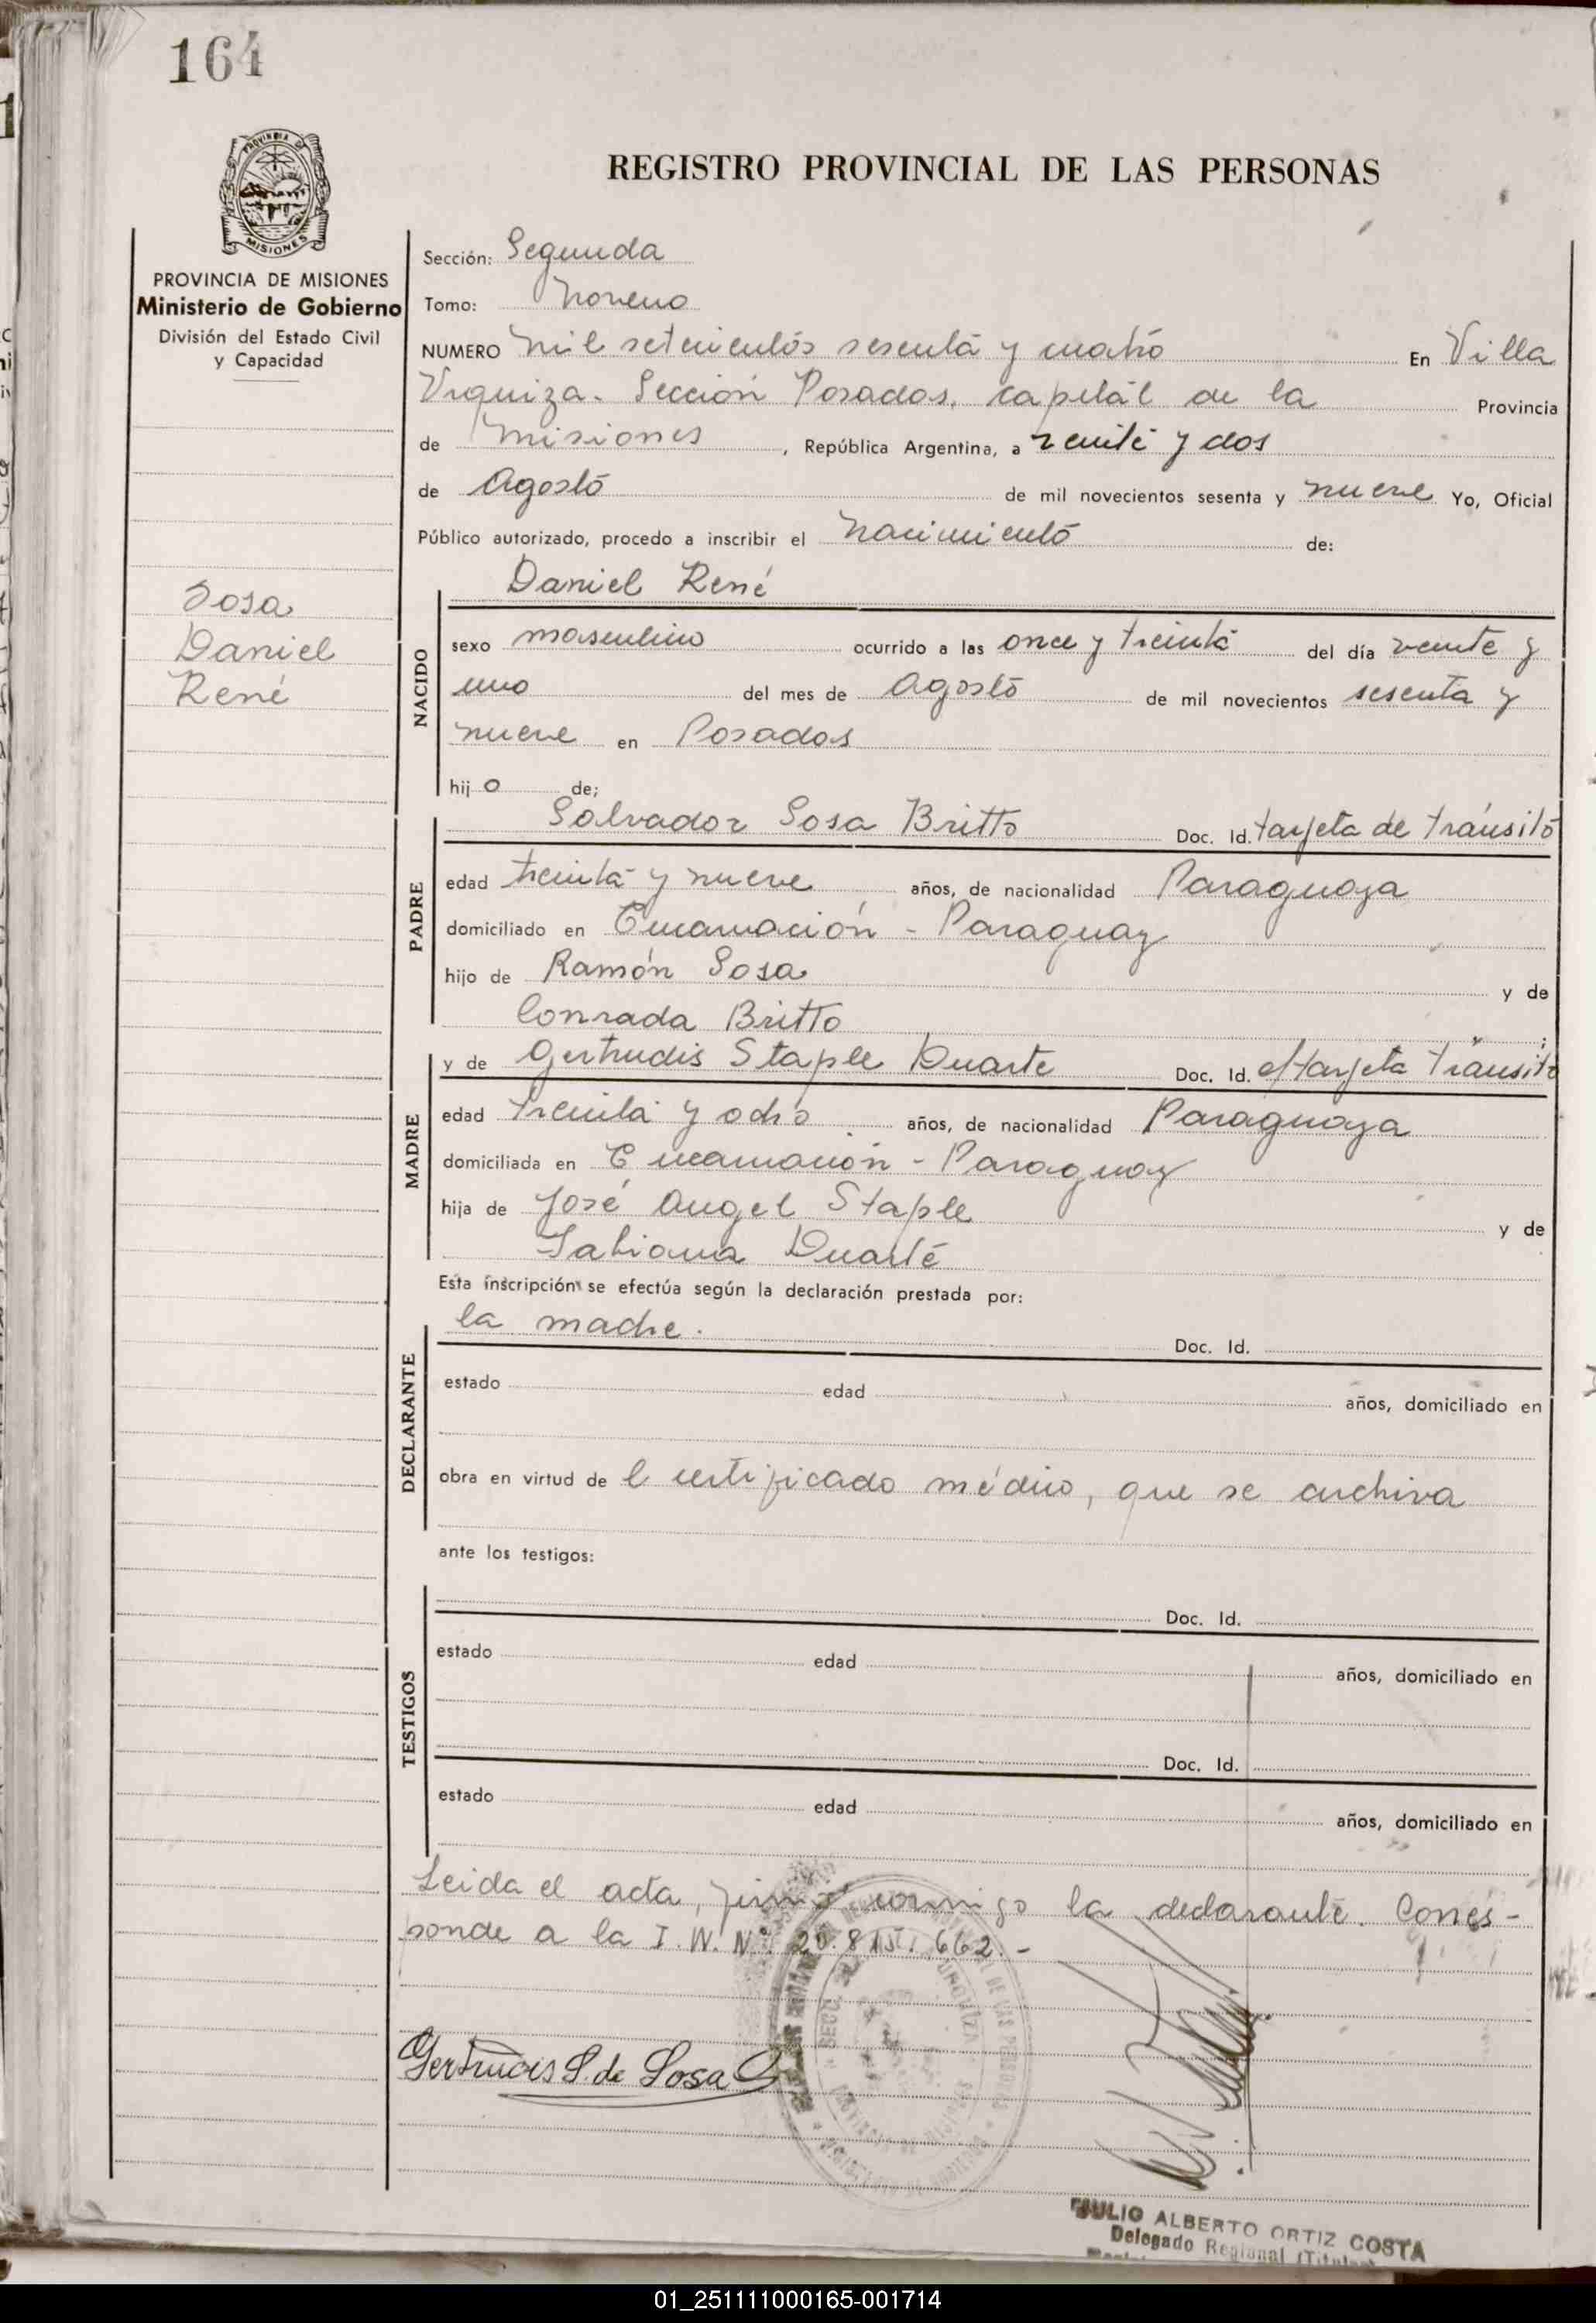 164
PROVINCIA DE MISIONES
REGISTRO PROVINCIAL DE LAS PERSONAS
PROVINCIA DE MISIONES
Ministerio de Gobierno
División del Estado Civil
y Capacidad
Sosa
Daniel
René
Sección: Segunda
Tomo: Noveno
NUMERO Mil setecientos sesenta y cuatro En Villa
Urquiza. Sección Posadas, capital de la Provincia
de Misiones, República Argentina, a veinte y dos
de Agosto de mil novecientos sesenta y nueve Yo, Oficial
Público autorizado, procedo a inscribir el nacimiento de:
Daniel René
NACIDO
sexo masculino ocurrido a las once y treinta del día veinte y
uno del mes de Agosto de mil novecientos sesenta y
nueve en Posadas
hijo de;
PADRE
Salvador Sosa Britto Doc. Id. tarjeta de tránsito
edad treinta y nueve años, de nacionalidad Paraguaya
domiciliado en Encarnación - Paraguay
hijo de Ramón Sosa y de
Conrada Britto ;
MADRE
y de Gertrudis Staple Duarte Doc. Id. c/tarjeta tránsito
edad treinta y ocho años, de nacionalidad Paraguaya
domiciliada en Encarnación - Paraguay
hija de José Angel Staple y de
Duarte
Esta inscripción se efectúa según la declaración prestada por:
DECLARANTE
la madre. Doc. Id.
estado edad años, domiciliado en
obra en virtud de l certificado médico, que se archiva
ante los testigos:
TESTIGOS
Doc. Id.
estado edad años, domiciliado en
Doc. Id.
estado edad años, domiciliado en
Leida el acta, firmó conmigo la declarante. Corres-
ponde a la I. N. Nº. 20.815.662.-
Gertrudis S. de Sosa
JULIO ALBERTO ORTIZ COSTA
Delegado Regional (Titular)
01_251111000165-001714